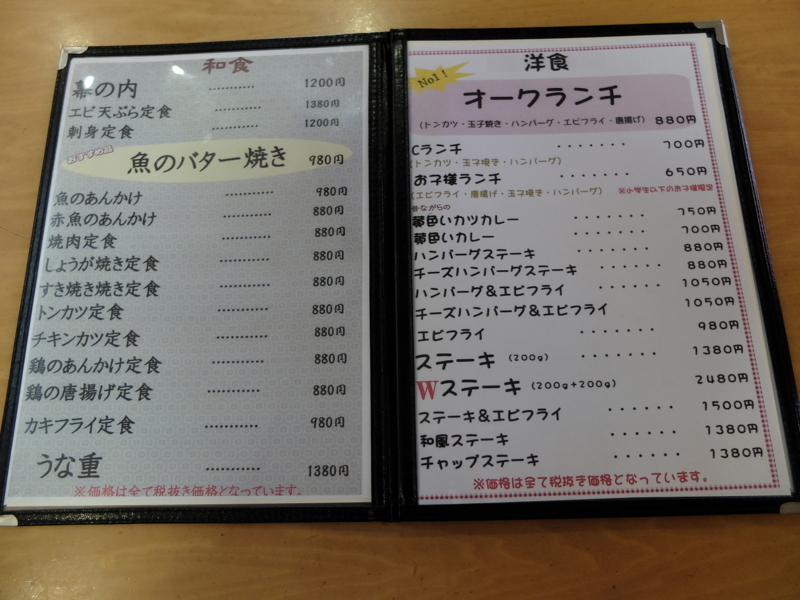 和食
幕の内 ………… 1200円
エビ天ぷら定食 ………… 1380円
刺身定食 ………… 1200円
おすすめ品
魚のバター焼き 980円
魚のあんかけ ………… 980円
赤魚のあんかけ ………… 880円
焼肉定食 ………… 880円
しょうが焼き定食 ………… 880円
すき焼き焼き定食 ………… 880円
トンカツ定食 ………… 880円
チキンカツ定食 ………… 880円
鶏のあんかけ定食 ………… 880円
鶏の唐揚げ定食 ………… 880円
カキフライ定食 ………… 980円
うな重 ………… 1380円
※価格は全て税抜き価格となっています。
洋食
No1！
オークランチ
(トンカツ・玉子焼き・ハンバーグ・エビフライ・唐揚げ) 880円
Cランチ ・・・・・・・ 700円
(トンカツ・玉子焼き・ハンバーグ)
お子様ランチ ・・・・・・・ 650円
(エビフライ・唐揚げ・玉子焼き・ハンバーグ) ※小学生以下のお子様限定
昔ながらの
黄色いカツカレー ・・・・・・・ 750円
黄色いカレー ・・・・・・・ 700円
ハンバーグステーキ ・・・・・・・ 880円
チーズハンバーグステーキ ・・・・・・ 880円
ハンバーグ＆エビフライ ・・・・・・ 1050円
チーズハンバーグ＆エビフライ 1050円
エビフライ ・・・・・・・・ 980円
ステーキ (200g) ・・・・・・・ 1380円
Wステーキ (200g+200g) 2480円
ステーキ＆エビフライ ・・・・・・ 1500円
和風ステーキ ・・・・・・ 1380円
チャップステーキ ・・・・・・ 1380円
※価格は全て税抜き価格となっています。